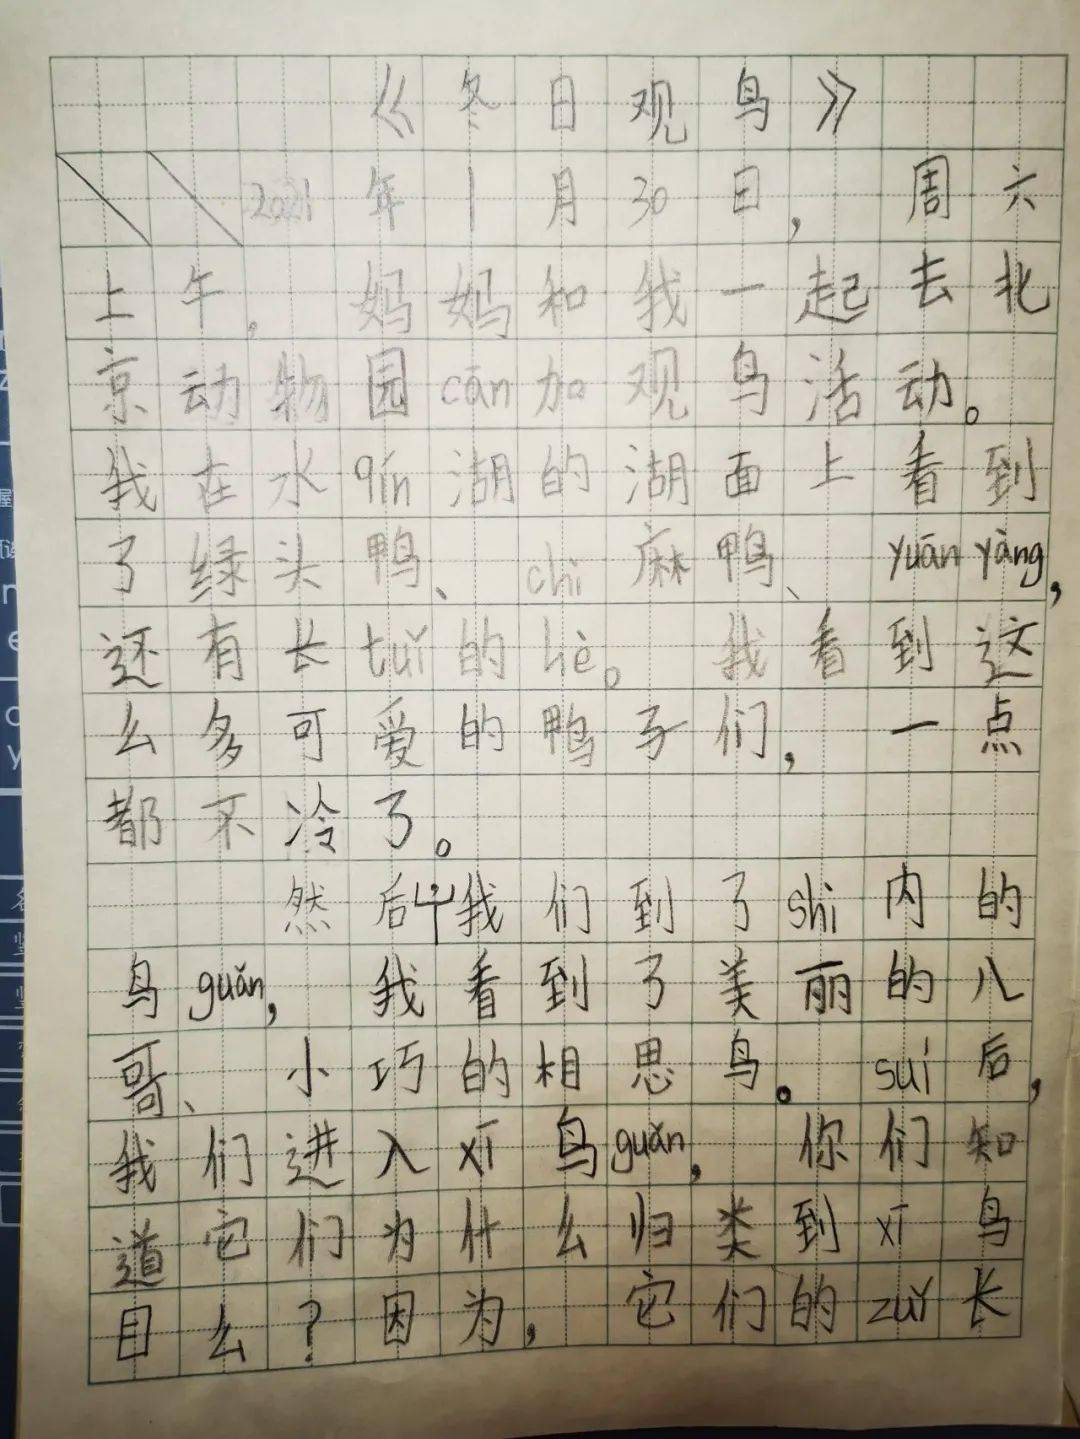 《冬日观鸟》
2021年1月30日，周六
上午，妈妈和我一起去北
京动物园cān加观鸟活动。
我在水qín湖的湖面上看到
了绿头鸭、chì麻鸭、yuān yàng，
还有长tuǐ的hè。我看到这
么多可爱的鸭子们，一点
都不冷了。
然后我们到了shì内的
鸟guǎn，我看到了美丽的八
哥、小巧的相思鸟。suí后，
我们进入xī鸟guǎn，你们知
道它们为什么归类到xī鸟
目么？因为，它们的zuǐ长